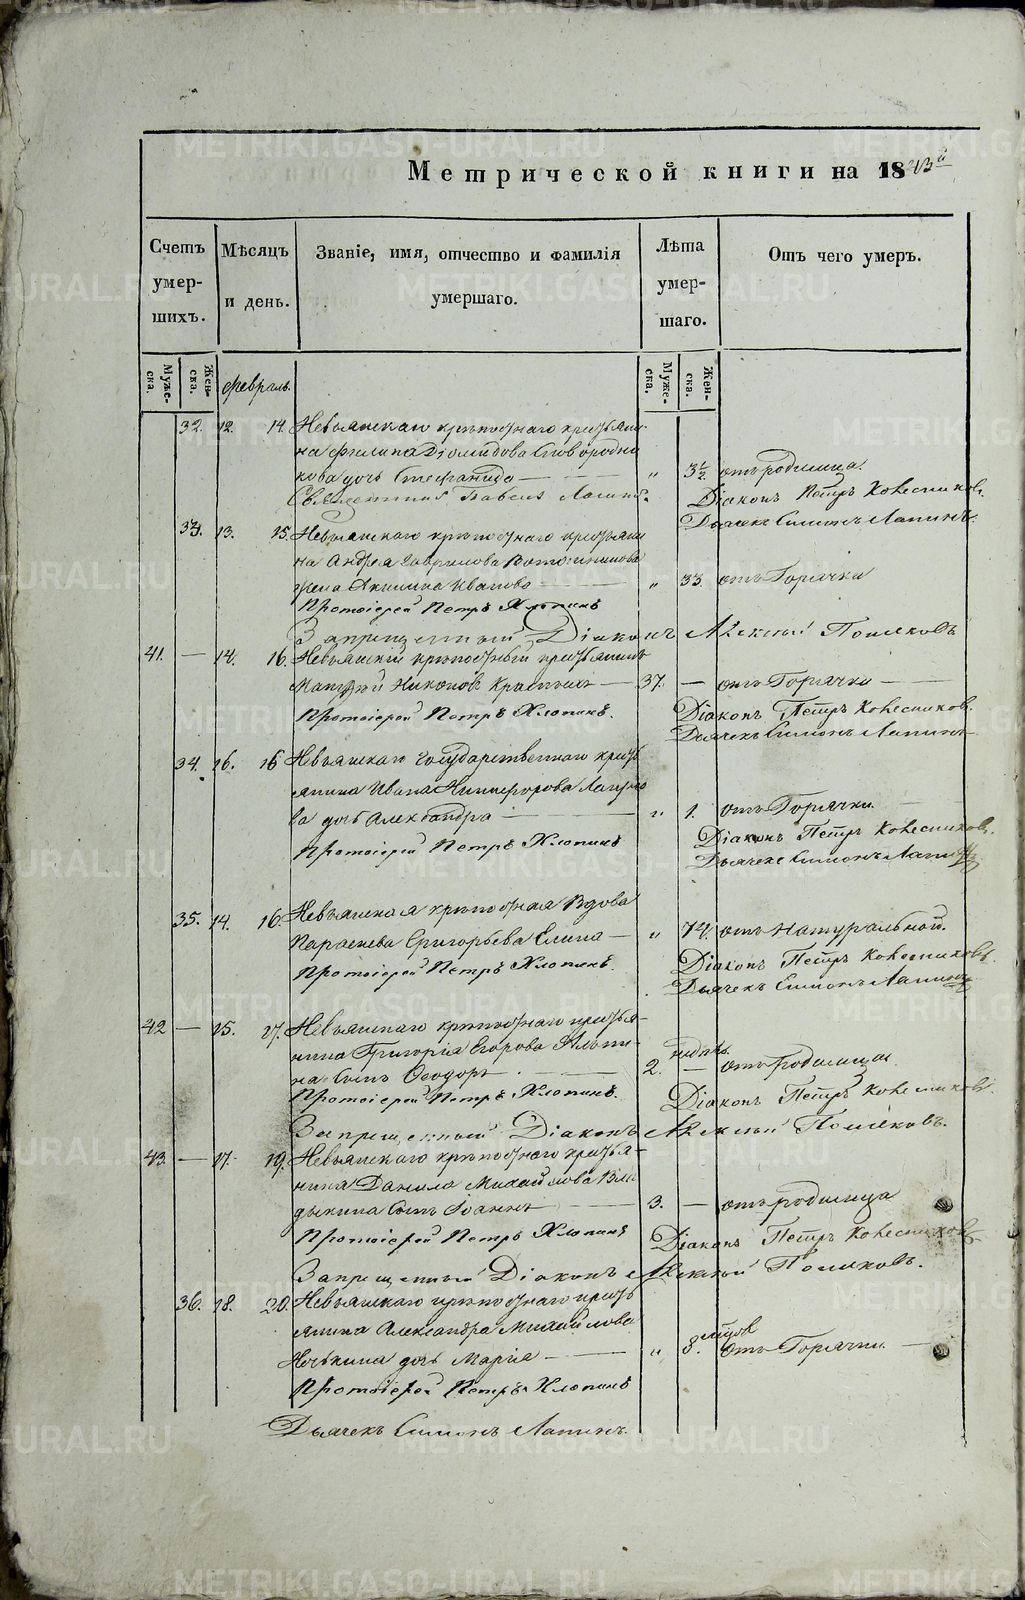 Метрической книги на 1843й
Счетъ умершихъ.
Мѣсяцъ и день.
Званіе, имя, отчество и фамилія умершаго.
Лѣта умершаго.
Отъ чего умеръ.
Мужеска. Женска. Февраль. Мужеска. Женска.
32. 12. 14. Невьянскаго крѣпостнаго крестьяни-
на Филипа Діомидова Сковородни
кова дочь Стефанида — „ 3½ отъ родимца.
Священникъ Павелъ Діаконъ Петръ Колесников.
Дьячекъ Симонъ Лапинъ.
33. 13. 15. Невьянскаго крѣпостнаго крестьяни
на Андрея Гаврилова
жена Акилина Иванова — „ 33. отъ Горячки
Протоіерей Петръ Хлопинъ
Запрещенный Діаконъ Алексѣй Поляковъ
41. — 14. 16. Невьянскій крѣпостный крестьянинъ
Матвѣй Никоновъ — 37. — отъ Горячки —
Протоіерей Петръ Хлопинъ. Діаконъ Петръ Колесников.
Дьячекъ Симонъ Лапинъ
34. 16. 16 Невьянскаго государственнаго кресть
янина Ивана Никифорова
ва дочь Александра — „ 1. отъ Горячки
Протоіерей Петръ Хлопинъ Діаконъ Петръ Колесников.
Дьячекъ Симонъ Лапинъ
35. 14. 16. Невьянская крѣпостная вдова
Параскева Григорьева Елина — „ 74. отъ натуральной.
Протоіерей Петръ Хлопинъ. Діаконъ Петръ Колесниковъ.
Дьячекъ Симонъ Лапинъ
42 — 15. 17. Невьянскаго крѣпостнаго крестья-
нина Григорія Егорова
на сынъ Ѳеодоръ — 2. недѣл. — отъ родимца
Протоіерей Петръ Хлопинъ. Діаконъ Петръ Колесниковъ
Запрещенный Діаконъ Алексѣй Поляковъ.
43. — 17. 19. Невьянскаго крѣпостнаго крестья-
нина Данила Михайлова Вла
дыкина сынъ Іоаннъ — 3. — отъ родимца
Протоіерей Петръ Хлопинъ Діаконъ Петръ Колесников
Запрещенный Діаконъ Алексѣй Поляковъ.
36. 18. 20. Невьянскаго крѣпостнаго кресть
янина Александра Михайлова
дочь Марія — „ 8. мѣсцов отъ Горячки —
Протоіерей Петръ Хлопинъ
Дьячекъ Симонъ Лапинъ.
METRIKI.GASO-URAL.RU